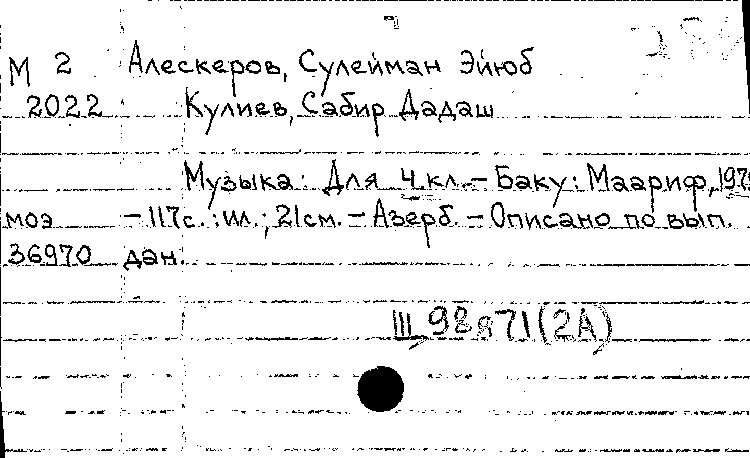 М 2 Алескеров, Сулейман Эйюб
2022 Кулиев, Сабир Дадаш
Музыка: Для 4 кл. – Баку: Маариф,
моэ – 117с.: ил.; 21см. – Азерб. – Описано по вып.
36970 дан.
III 98871(2А)